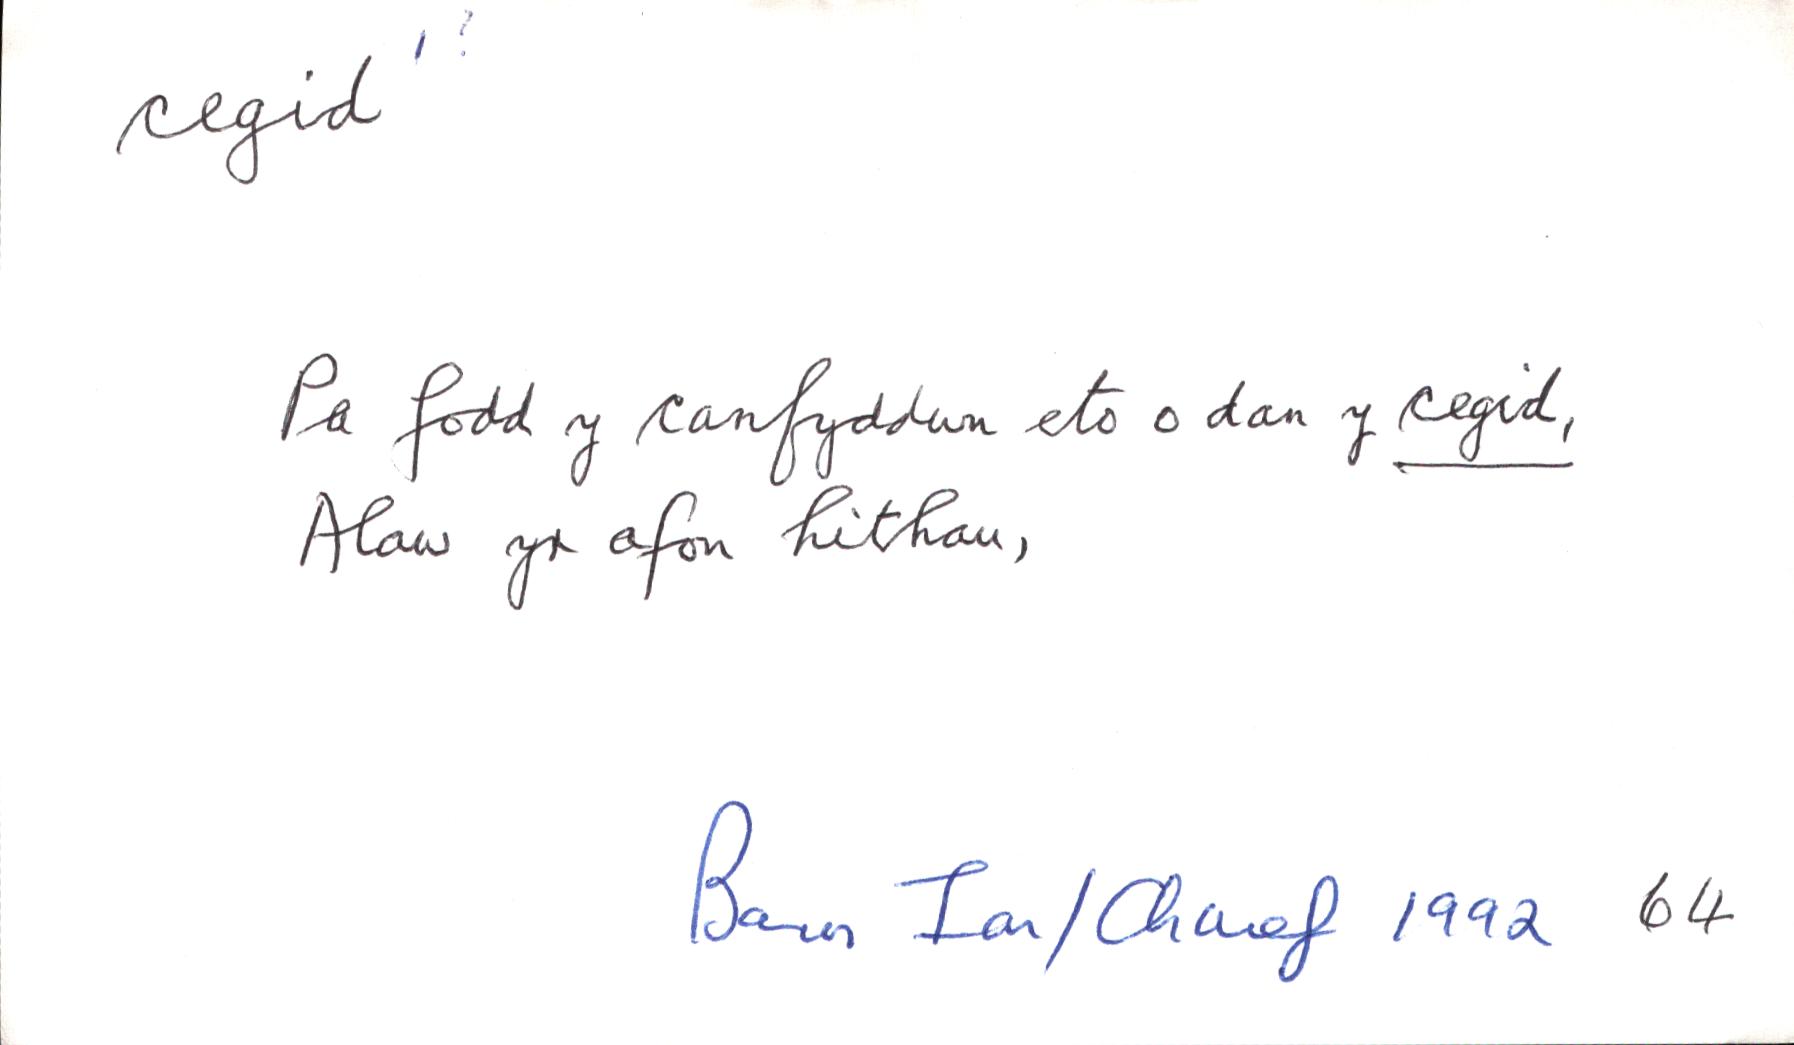 cegid 1 ?
Pa fodd y canfyddwn eto o dan y cegid,
Alaw yr afon hithau,
Barn Ion/Chwef 1992 64